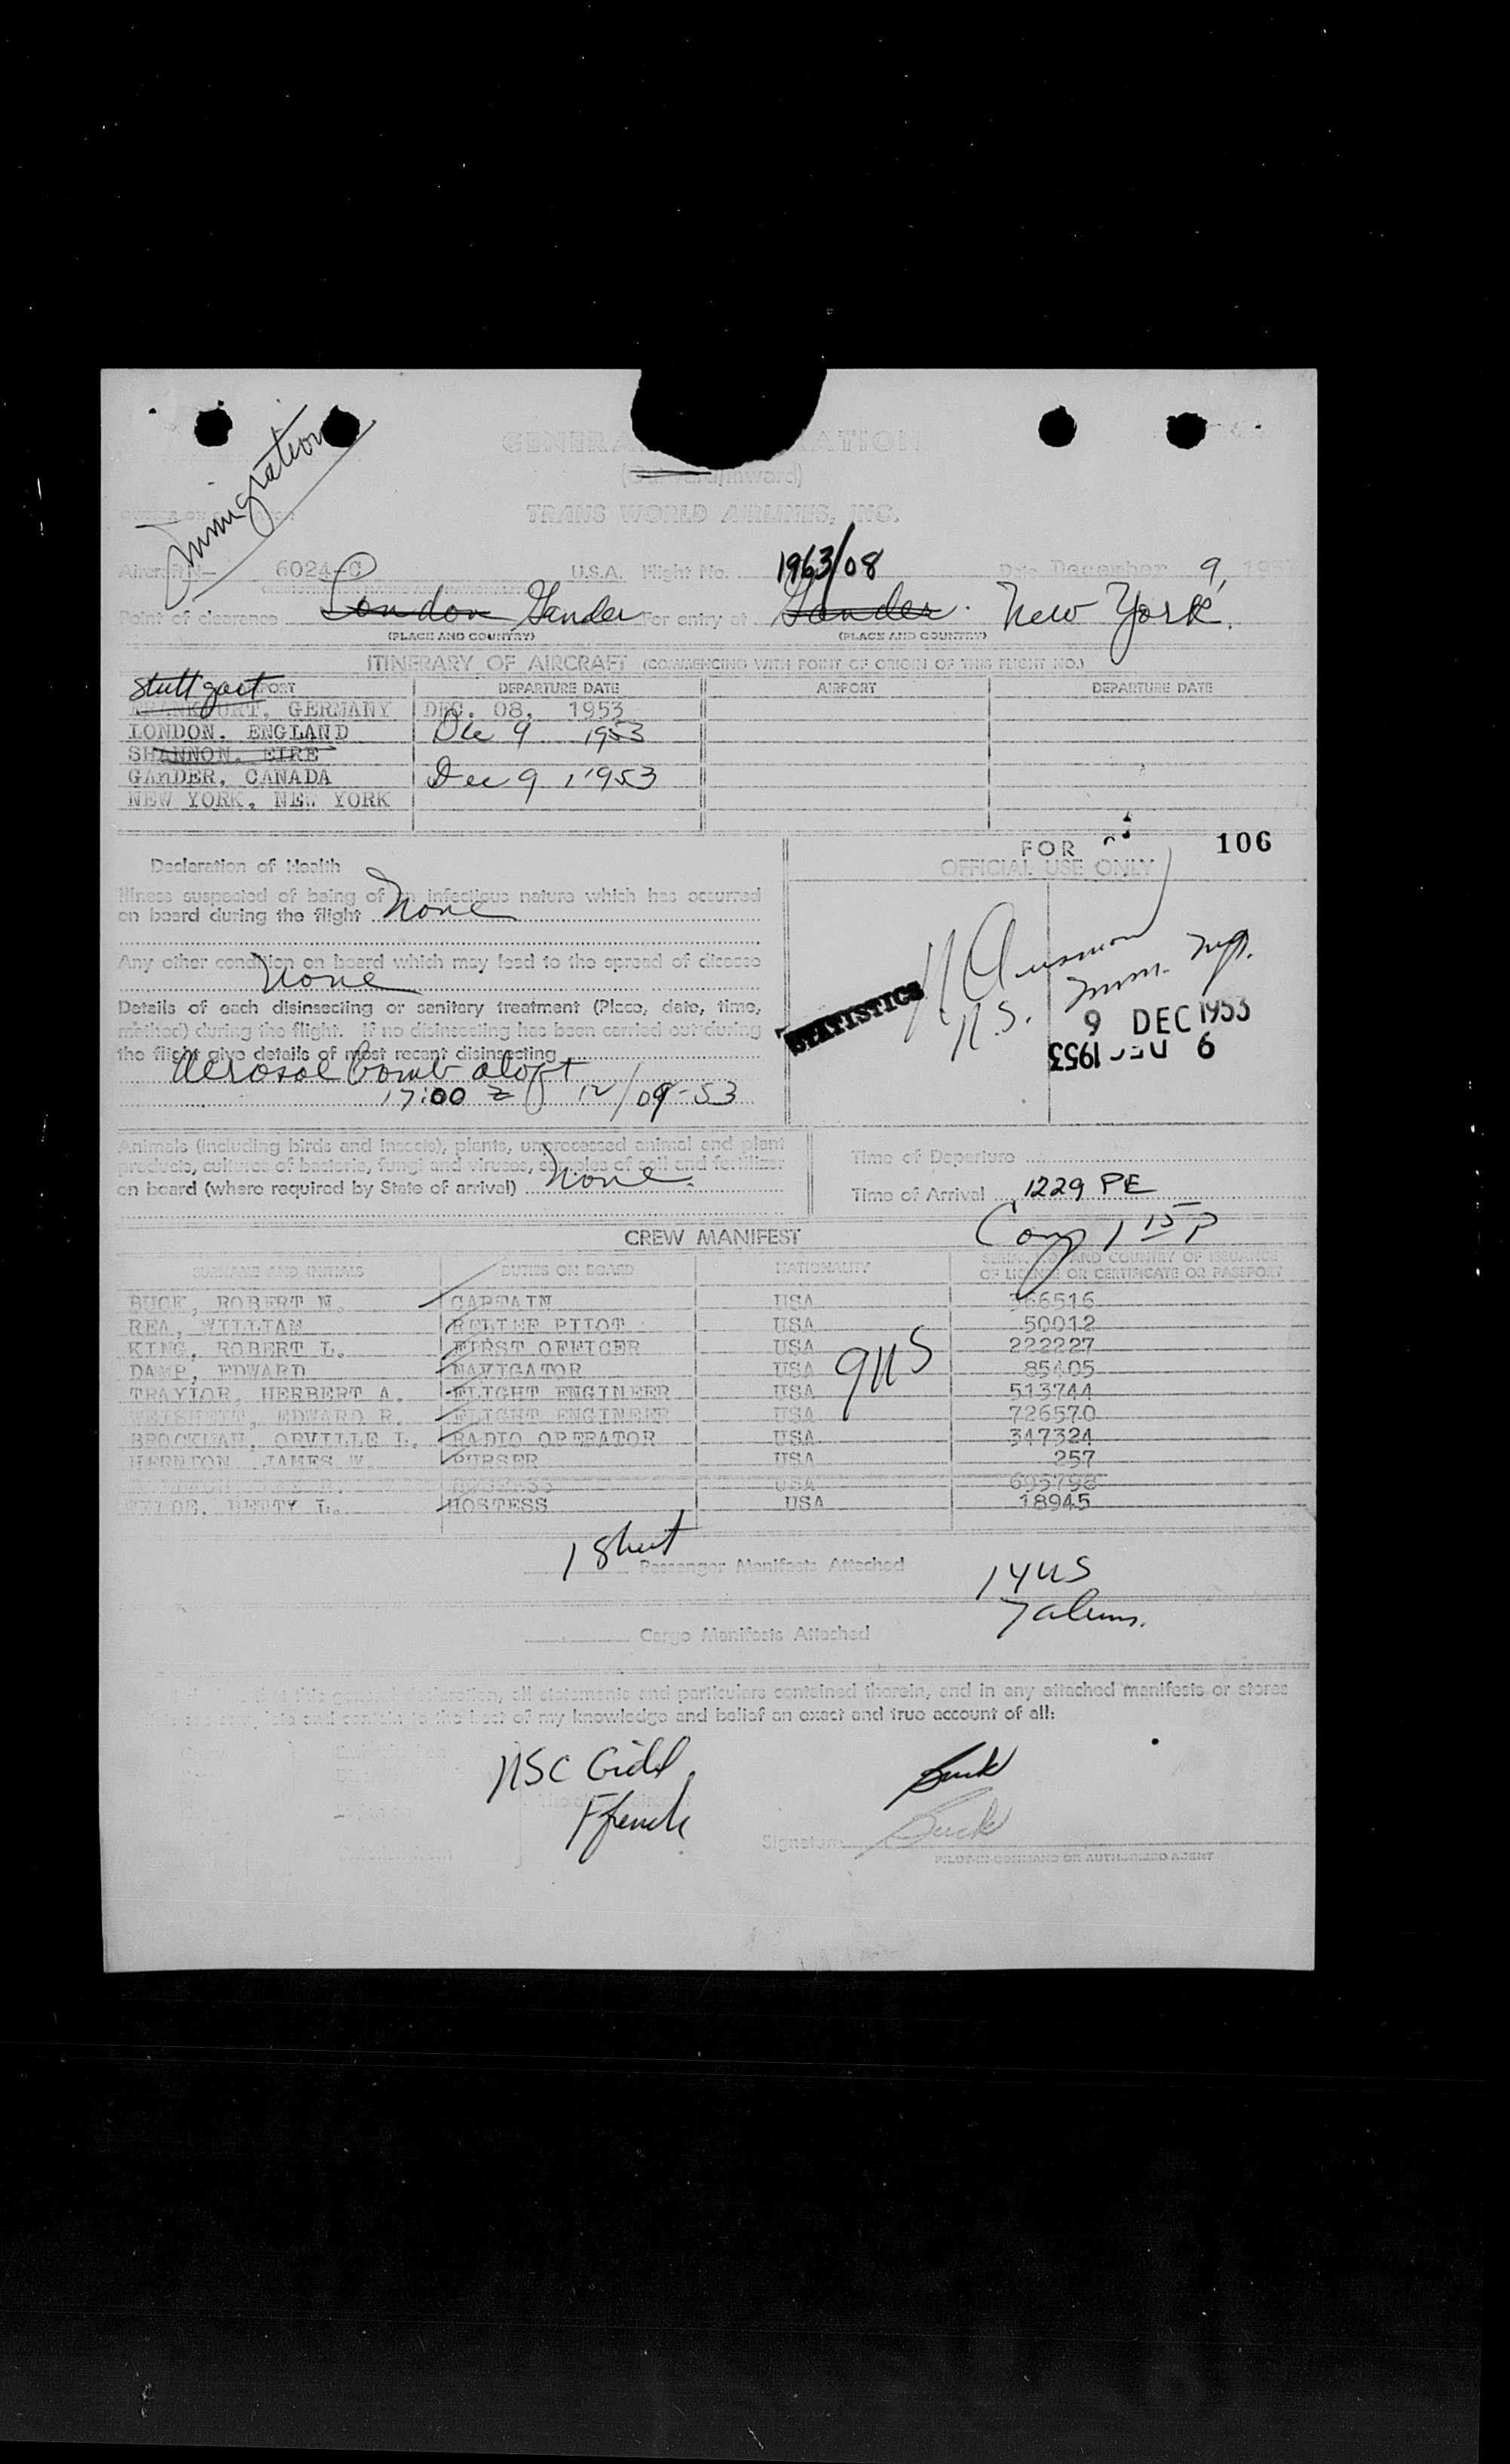 Immigration
TRANS WORLD AIRLINES, INC.
Aircraft N— 6024-C U.S.A. Flight No. 1963/08 Date December 9, 195
Point of clearance London Gander For entry at Gander. New York.
(PLACE AND COUNTRY) (PLACE AND COUNTRY)
ITINERARY OF AIRCRAFT (COMMENCING WITH POINT OF ORIGIN OF THIS FLIGHT NO.)
Stuttgart DEPARTURE DATE AIRPORT DEPARTURE DATE
FRANKFURT, GERMANY DEC. 08, 1953
LONDON, ENGLAND Dec 9 1953
SHANNON, EIRE
GANDER, CANADA Dec 9, 1953
NEW YORK, NEW YORK
FOR
OFFICIAL USE ONLY
106
Declaration of Health
Illness suspected of being of an infectious nature which has occurred
on board during the flight None
Any other condition on board which may lead to the spread of disease
None
Details of each disinsecting or sanitary treatment (Place, date, time,
method) during the flight. If no disinsecting has been carried out during
the flight give details of most recent disinsecting
Aerosol bomb aloft
17:00 z 12/09-53
STATISTICS
9 DEC 1953
9 DEC 1953
Animals (including birds and insects), plants, unprocessed animal and plant
products, cultures of bacteria, fungi and viruses, samples of soil and fertilizer
on board (where required by State of arrival) None.
Time of Departure
Time of Arrival 1229 PE
CREW MANIFEST
SURNAME AND INITIALS DUTIES ON BOARD NATIONALITY SERIAL NO. AND COUNTRY OF ISSUANCE
OF LICENSE OR CERTIFICATE OR PASSPORT
BUCK, ROBERT N. CAPTAIN USA 366516
REA, WILLIAM RELIEF PILOT USA 50012
KING, ROBERT L. FIRST OFFICER USA 222227
DAMP, EDWARD NAVIGATOR USA 85405
TRAYLOR, HERBERT A. FLIGHT ENGINEER USA 513744
EDWARD R. FLIGHT ENGINEER USA 726570
BROCKMAN, ORVILLE L. RADIO OPERATOR USA 347324
HERNDON, JAMES W. PURSER USA 257
HOSTESS USA 695798
WILDE, BETTY L. HOSTESS USA 18945
9US
1 Sheet Passenger Manifests Attached
14 US
7 aliens.
Cargo Manifests Attached
that this general declaration, all statements and particulars contained therein, and in any attached manifests or stores
to the best of my knowledge and belief an exact and true account of all:
Buck
Signature Buck
PILOT-IN-COMMAND OR AUTHORIZED AGENT